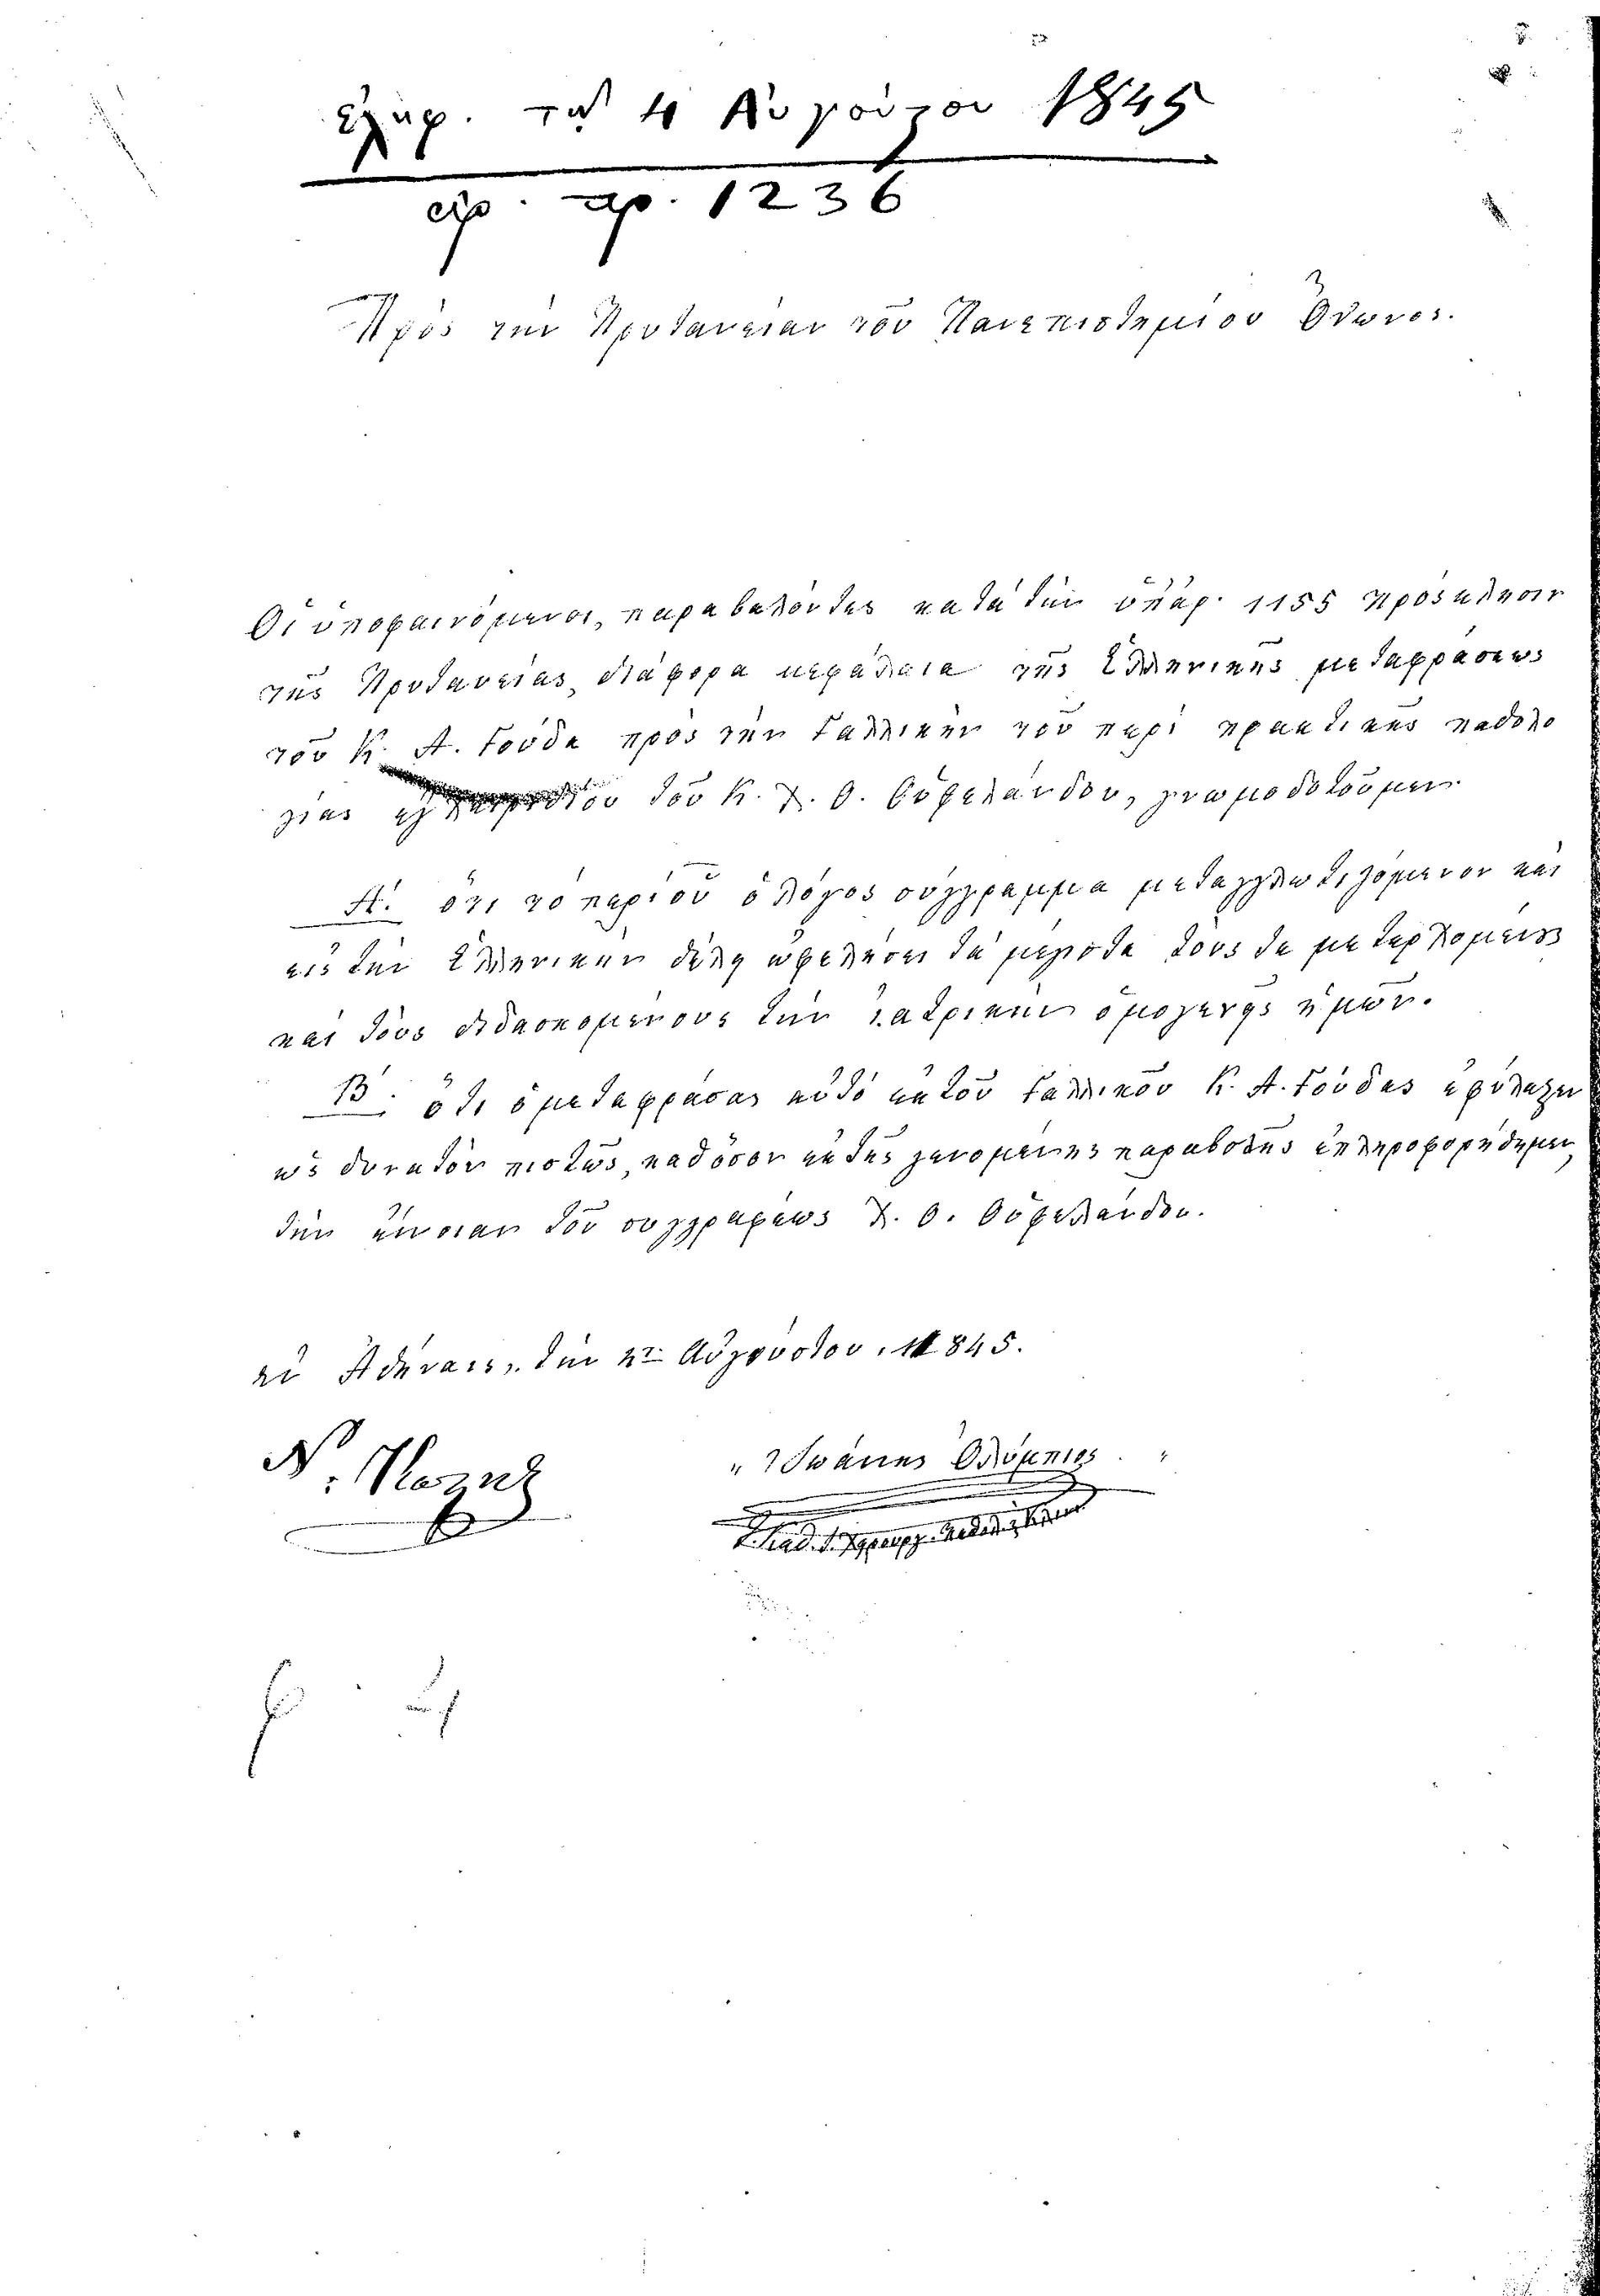 Ἐλήφ. τῇ 4 Αὐγούστου 1845
εἰς. ἀρ. 1236
Πρὸς τὴν Πρυτανείαν τοῦ Πανεπιστημίου Ὄθωνος.
Οἱ ὑποφαινόμενοι, παραβαλόντες κατὰ τὴν ὑπ' ἀρ. 1155 πρόσκλησιν
τῆς Πρυτανείας, διάφορα κεφάλαια τῆς Ἑλληνικῆς μεταφράσεως
τοῦ Κ. Α. Γούδα πρὸς τὴν Γαλλικὴν τοῦ περὶ πρακτικῆς παθολο
γίας ἐγχειριδίου τοῦ Κ. Χ. Θ. Οὐφελάνδου, γνωμοδοτοῦμεν
Α. ὅτι τὸ περὶ οὗ ὁ λόγος σύγγραμμα μεταγλωττιζόμενον καὶ
εἰς τὴν Ἑλληνικὴν θέλῃ ὠφελήσει τὰ μέγιστα τοὺς τε μετερχομένους
καὶ τοὺς διδασκομένους τὴν ἰατρικὴν ὁμογενεῖς ἡμῶν.
Β. ὅτι ὁ μεταφράσας αὐτὸ ἐκ τοῦ Γαλλικοῦ Κ. Α. Γούδας ἐφύλαξεν
ὡς δυνατὸν πιστῶς, καθόσον ἐκ τῆς γενομένης παραβολῆς ἐπληροφορήθημεν,
τὴν ἔννοιαν τοῦ συγγραφέως Χ. Θ. Οὐφελάνδου.
ἐν Ἀθήναις, τὴν 2αν Αὐγούστου 1845.
Ν. Κωστῆς
Ἰωάννης Ὀλύμπιος